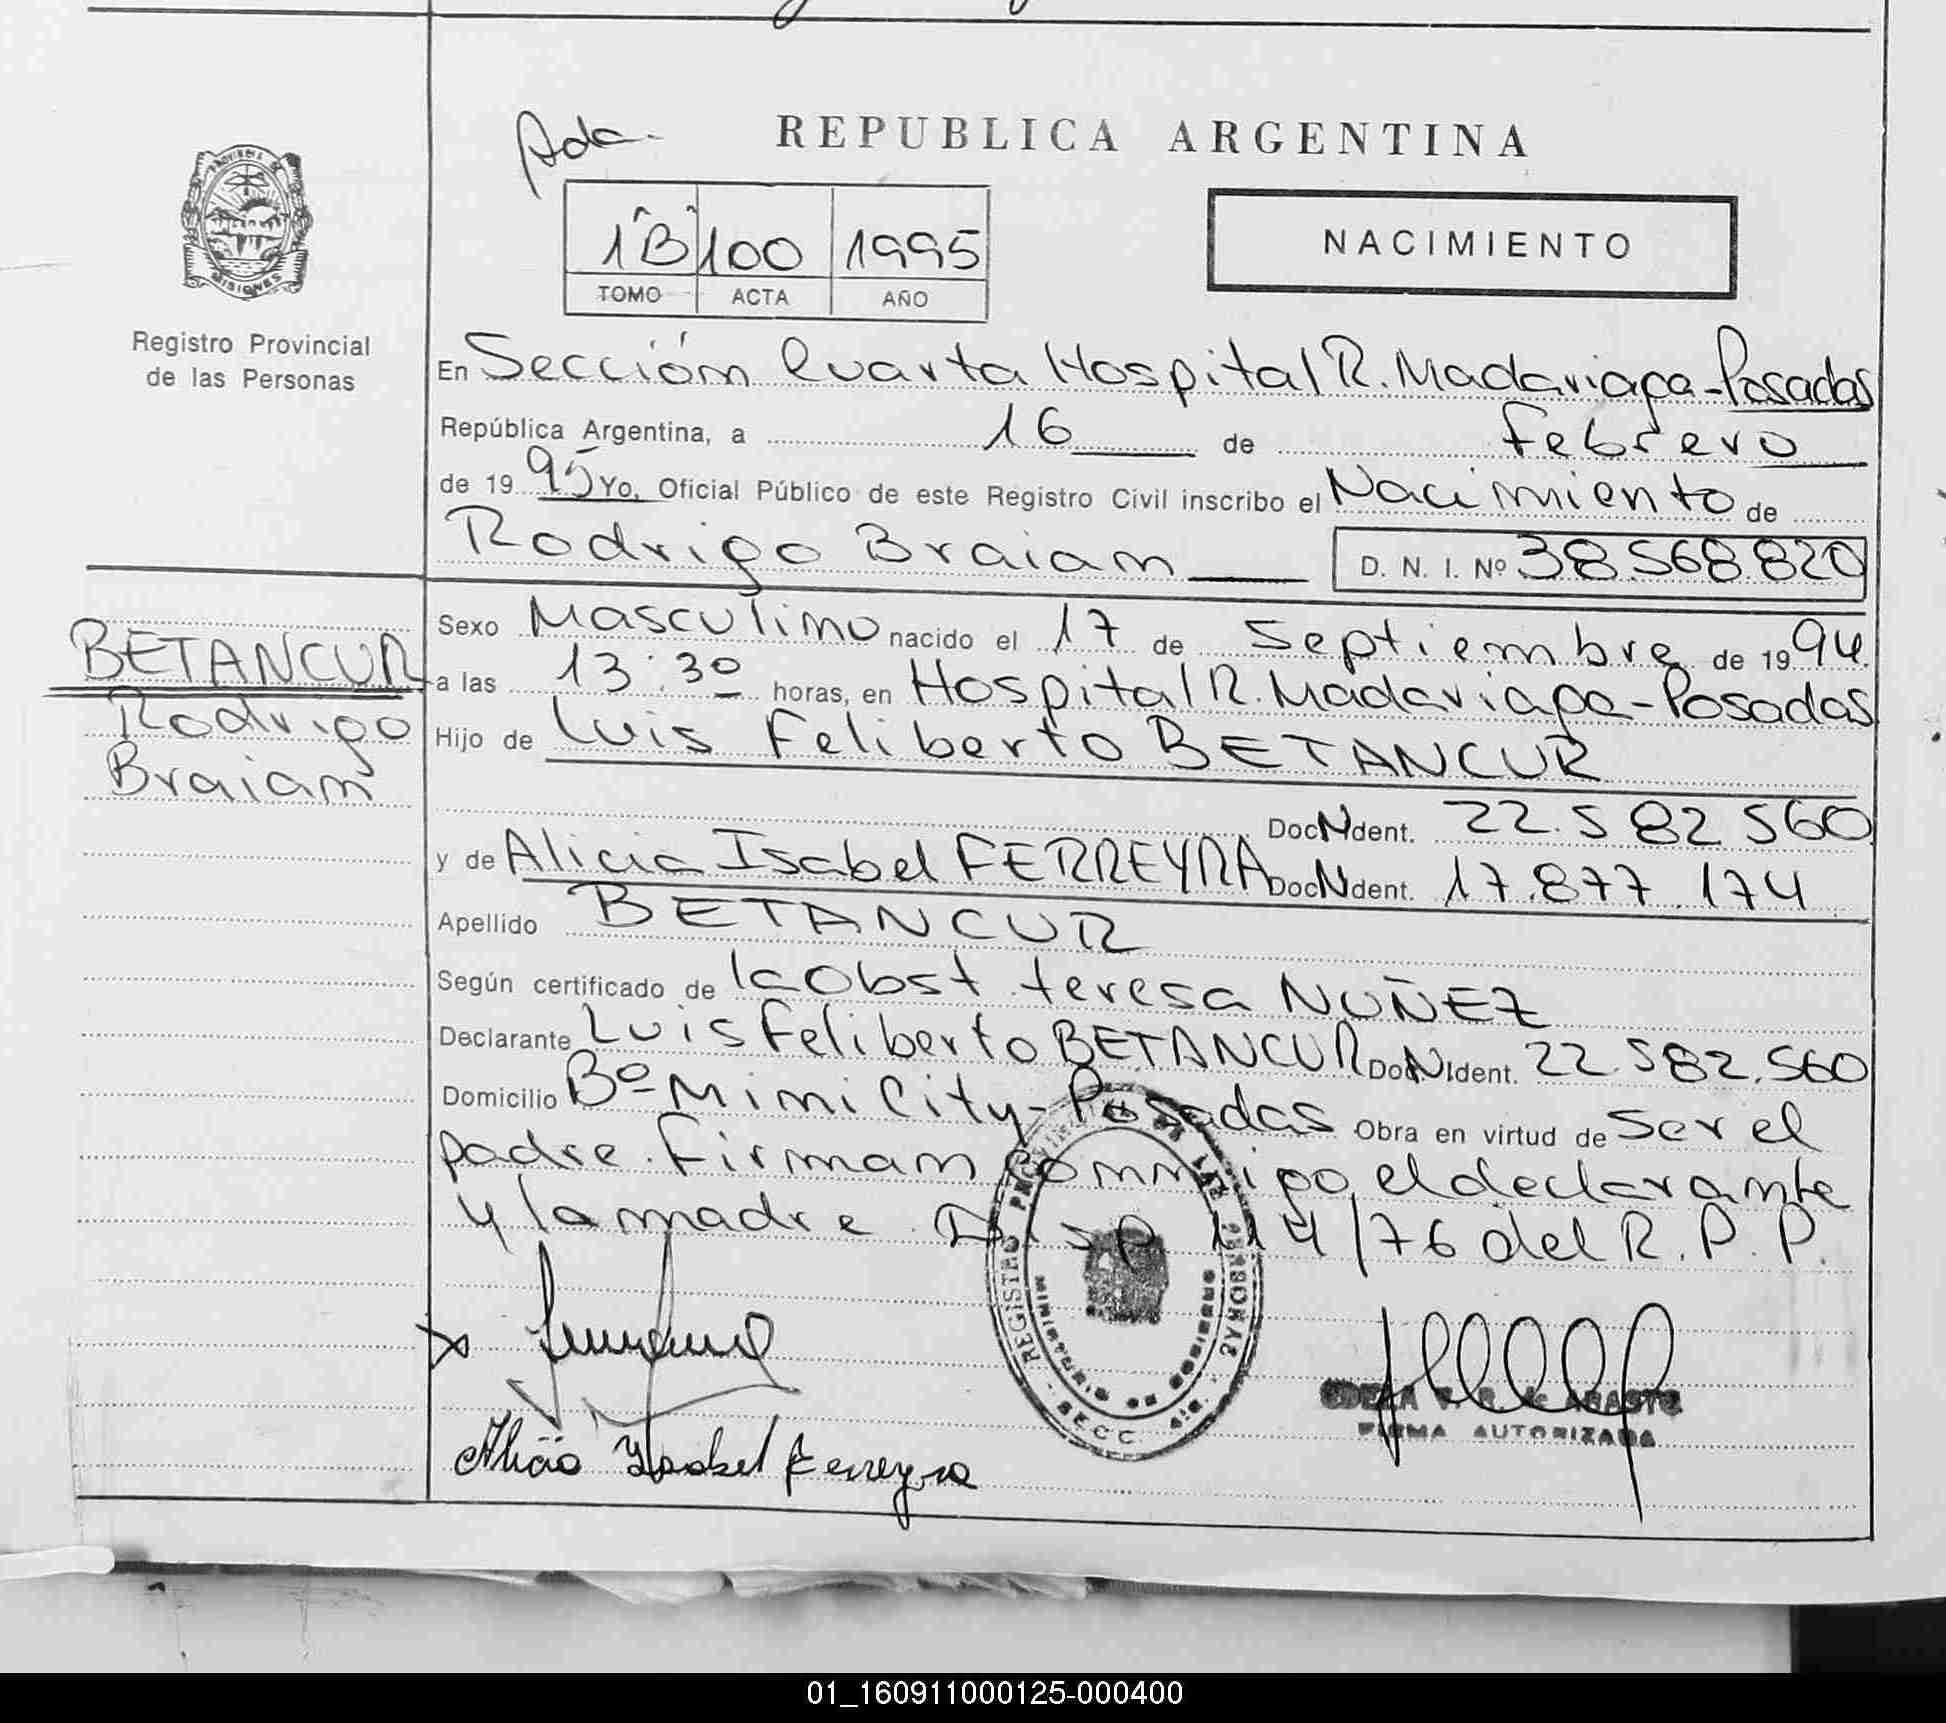 Ada-
REPUBLICA ARGENTINA
1ºB" 100 1995
TOMO ACTA AÑO
NACIMIENTO
PROVINCIA DE
MISIONES
Registro Provincial
de las Personas
En Sección Cuarta Hospital R. Madariaga-Posadas
República Argentina, a 16 de Febrero
de 1995 Yo, Oficial Público de este Registro Civil inscribo el Nacimiento de
Rodrigo Braian D. N. I. Nº 38.568.820
BETANCUR
Rodrigo
Braian
Sexo Masculino nacido el 17 de Septiembre de 1994.
a las 13:30 horas, en Hospital R. Madariaga-Posadas
Hijo de Luis Feliberto BETANCUR
Doc N Ident. 22.582560
y de Alicia Isabel FERREYRA Doc N Ident. 17.877.174
Apellido BETANCUR
Según certificado de la Obst teresa NUÑEZ
Declarante Luis Feliberto BETANCUR Doc N Ident. 22.582.560
Domicilio Bº Mini City-Posadas Obra en virtud de ser el
padre. Firman conmigo, el declarante
y la madre. Disp 114/76 del R.P.P.
REGISTRO PROVINCIAL DE LAS PERSONAS
MINISTERIO DE GOBIERNO
SECC 4ta.
Alicia Ysabel Ferreyra
FIRMA AUTORIZADA
01_160911000125-000400